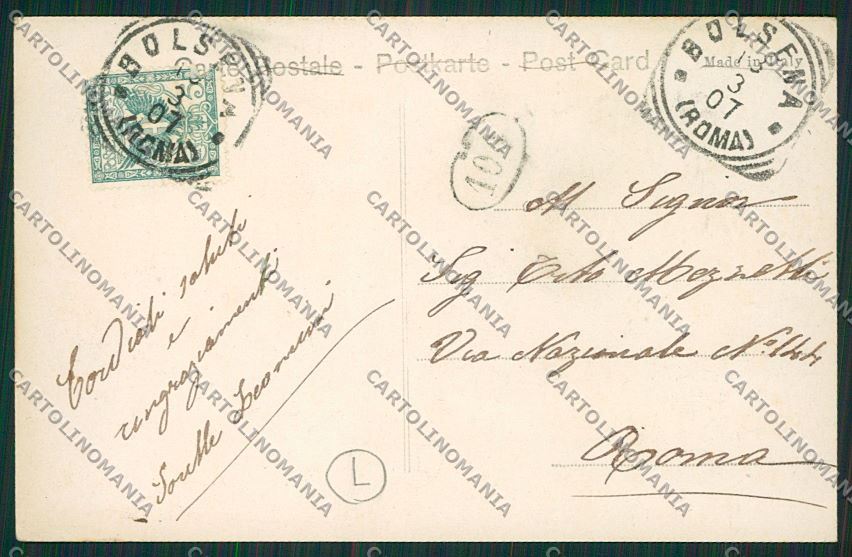 Carte Postale - Postkarte - Post Card
Made in Italy
BOLSENA
3
07
(ROMA)
BOLSENA
3
07
(ROMA)
104
Al Signor
Sig Tito
Via Nazionale N. 144
Roma
Cordiali saluti
e
ringraziamenti
L
CARTOLINOMANIA